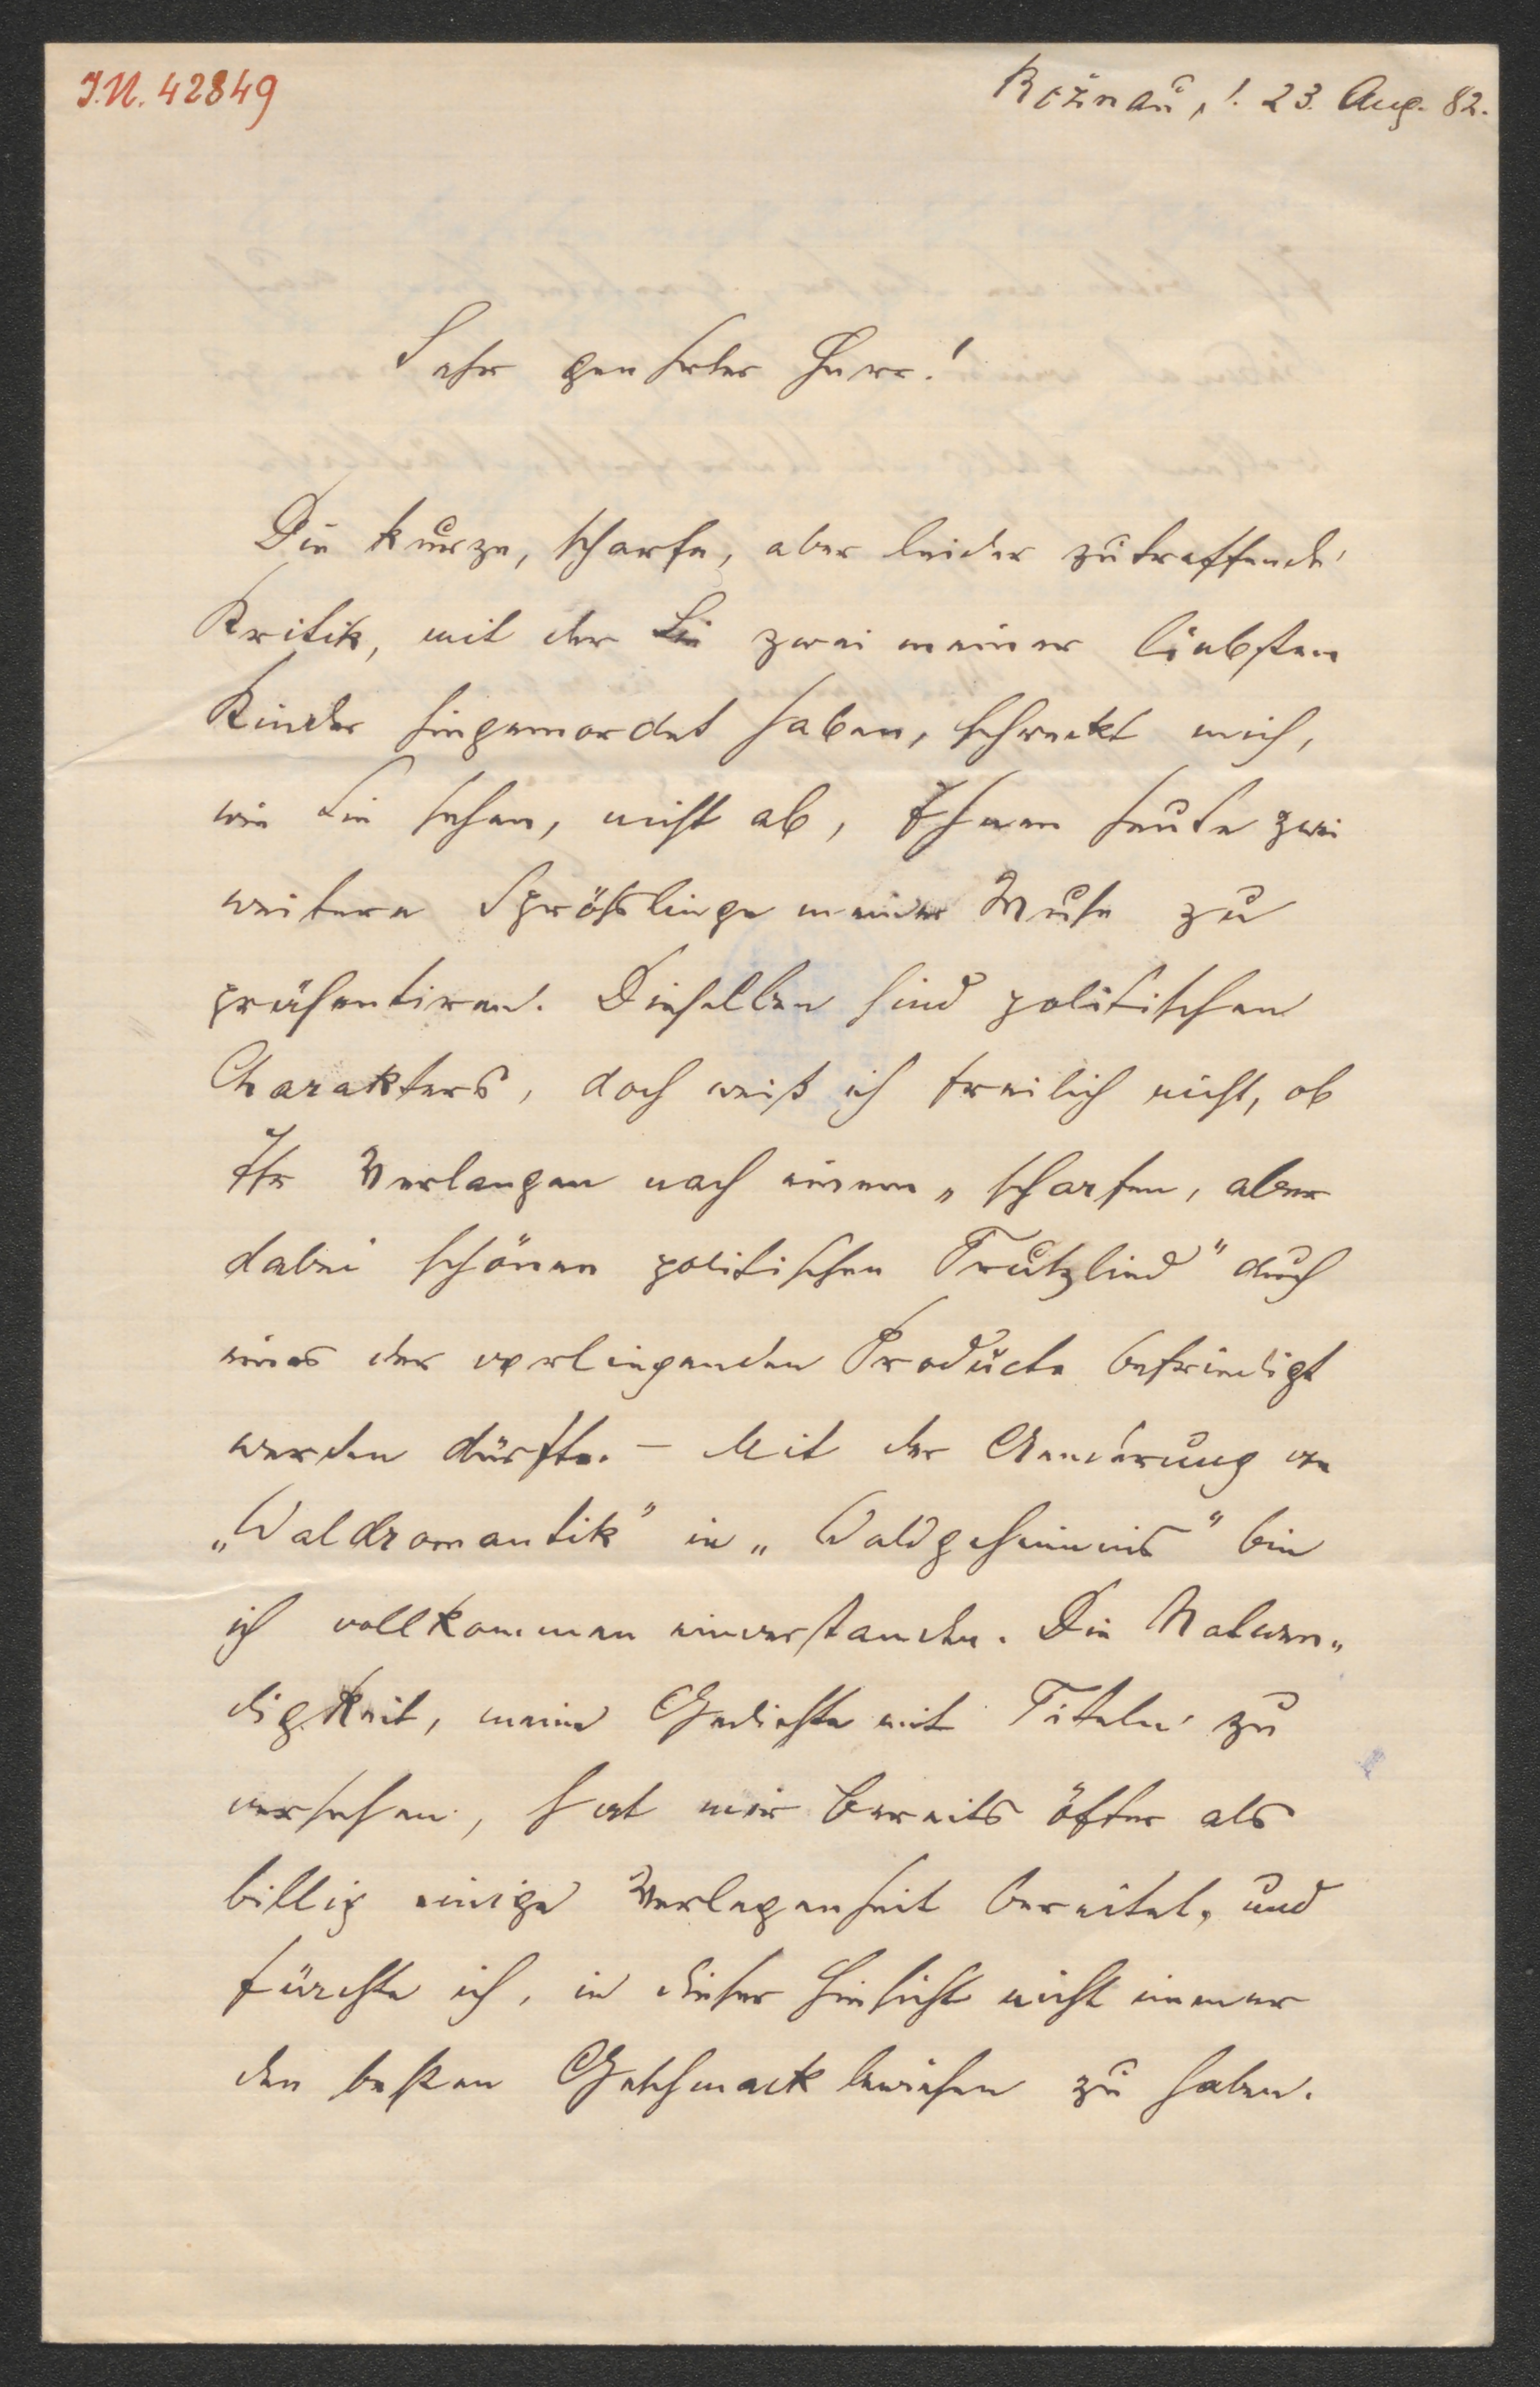 I.N. 42849
Rožnau, 23. Aug. 82.
Sehr geehrter Herr!
Die kurze, scharfe, aber leider zutreffende
Kritik, mit der Sie zwei meiner liebsten
Kinder hingemordet haben, schreckt mich,
wie Sie sehen, nicht ab, Ihnen heute zwei
weitere Sprößlinge meiner Muse zu
präsentiren. Dieselben sind politischen
Charakters, doch weiß ich freilich nicht, ob
Ihr Verlangen nach einem „scharfen, aber
dabei schönen politischen Trutzlied" durch
eines der vorliegenden Producte befriedigt
werden dürfte. – Mit der Aenderung von
„Waldromantik" in „Waldgeheimnis" bin
ich vollkommen einverstanden. Die Notwen„
digkeit, meine Gedichte mit Titeln zu
versehen, hat mir bereits öfter als
billig einige Verlegenheit bereitet, und
fürchte ich, in dieser Hinsicht nicht immer
den besten Geschmack bewiesen zu haben.